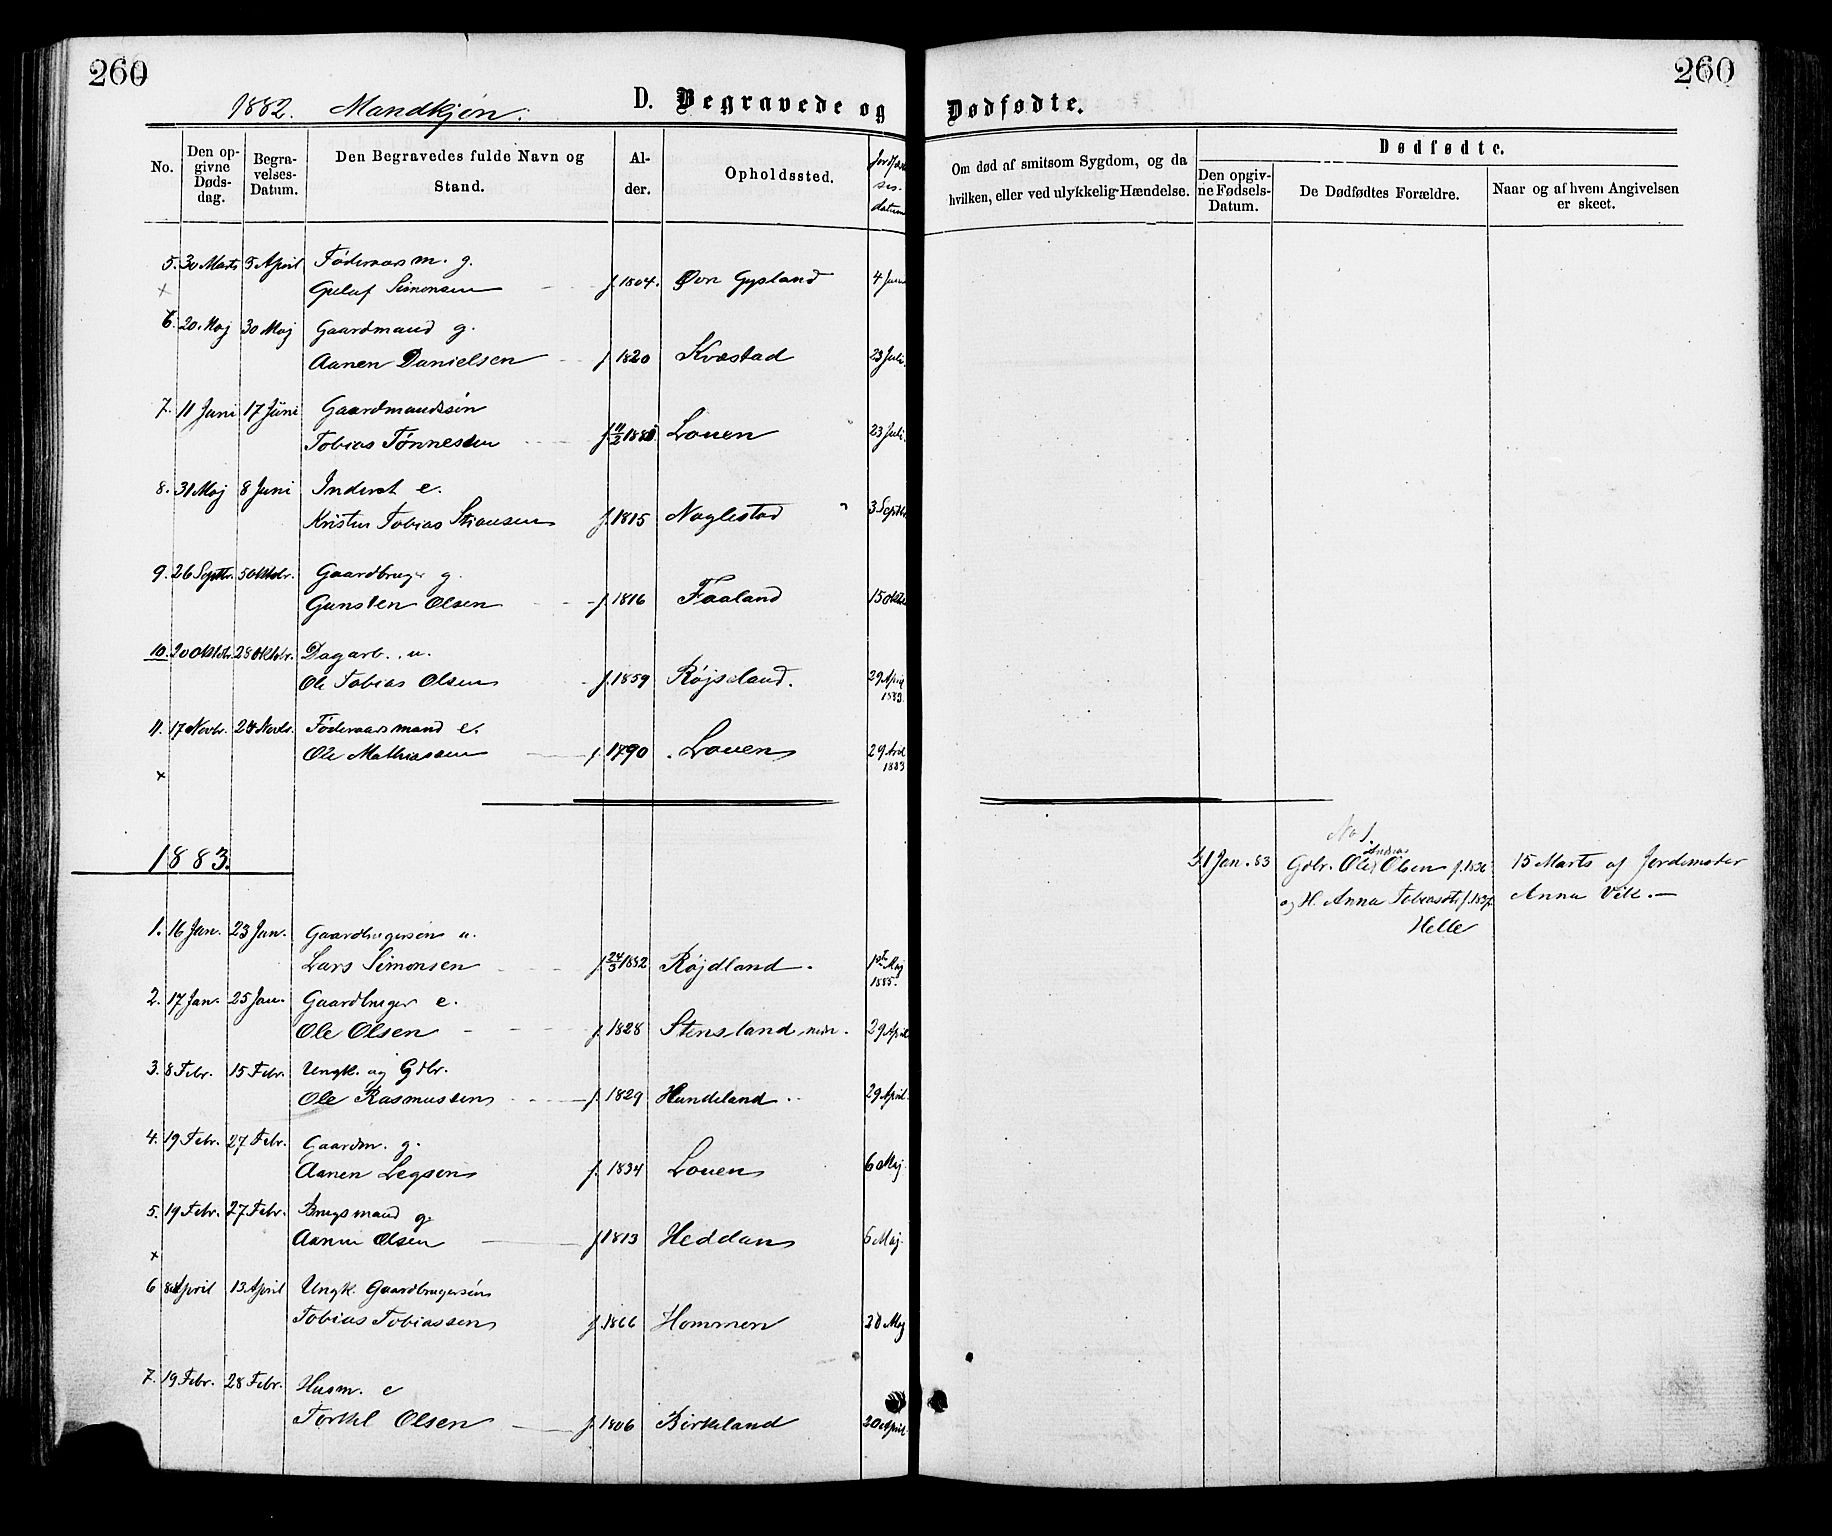 260
260
1882. Mandkjøn. D. Begravede og Dødfødte.
No.
Den opgivne Dødsdag.
Begravelses-Datum.
Den Begravedes fulde Navn og Stand.
Alder.
Opholdssted.
datum
Om død af smitsom Sygdom, og da hvilken, eller ved ulykkelig Hændelse.
Dødfødte.
Den opgivne Fødsels-Datum.
De Dødfødtes Forældre.
Naar og af hvem Angivelsen er skeet.
5. 30 Marts 5 April Føderaarsm. g.
Simonsen f. 1804. Øvre Gysland 4 Juni
6. 20. Maj 30 Maj Gaardmand g.
Aanen Danielsen f. 1820 Kvæstad 23 Juli.
7. 11 Juni 17 Juni Gaardmandssøn
Tobias Tønnesen Louen 23 Juli.
8. 31 Maj 8 Juni Inderst e.
Tobias f. 1815 Naglestad 3 Septbr
9. 26 Septbr. 5 Oktobr. Gaardbruger g.
Gunsten Olsen f. 1816 Faaland 15 Oktbr
10. 20 Oktobr. 28 Oktobr. Dagarb. u.
Ole Tobias Olsen f. 1859 Røjseland. 29 April
1883.
11. 17 Novbr. 24 Novbr. Føderaarsmand e.
Ole Mathiassen f. 1790 Louen 29 April
1883
1883.
No 1.
Andreas
Jan. 83 Gdbr. Ole Olsen f. 1836 15 Marts af Jordemoder
og H. Anna Tobiasdt. f. 1837. Anna Vik.—
Helle
1. 16 Jan. 23 Jan. Gaardbrugersøn u.
Lars Simonsen f. 24/3 1882 Røjdland. 1ste Maj
1885.
2. 17 Jan. 25 Jan. Gaardbruger e.
Ole Olsen f. 1828 Stensland 29 April
3. 8 Febr. 15 Febr. Ungk. og Gdbr.
Ole Rasmussen f. 1829 Hundeland 29 April.
4. 19 Febr. 27 Febr. Gaardm. g.
Aanen Legsen f. 1834 Louen 6 Maj.
5. 19 Febr. 27 Febr. Brugsmand g.
Aanen Olsen f. 1813 Heddan 6 Maj.
6 8 April 13 April Ungk. Gaardbrugersøn
Tobias Tobiassen f. 1866 Hommen 20 Maj
7. 19 Febr. 28 Febr. Husm. e
Torkel Olsen f. 1806 Birkeland 20 April.